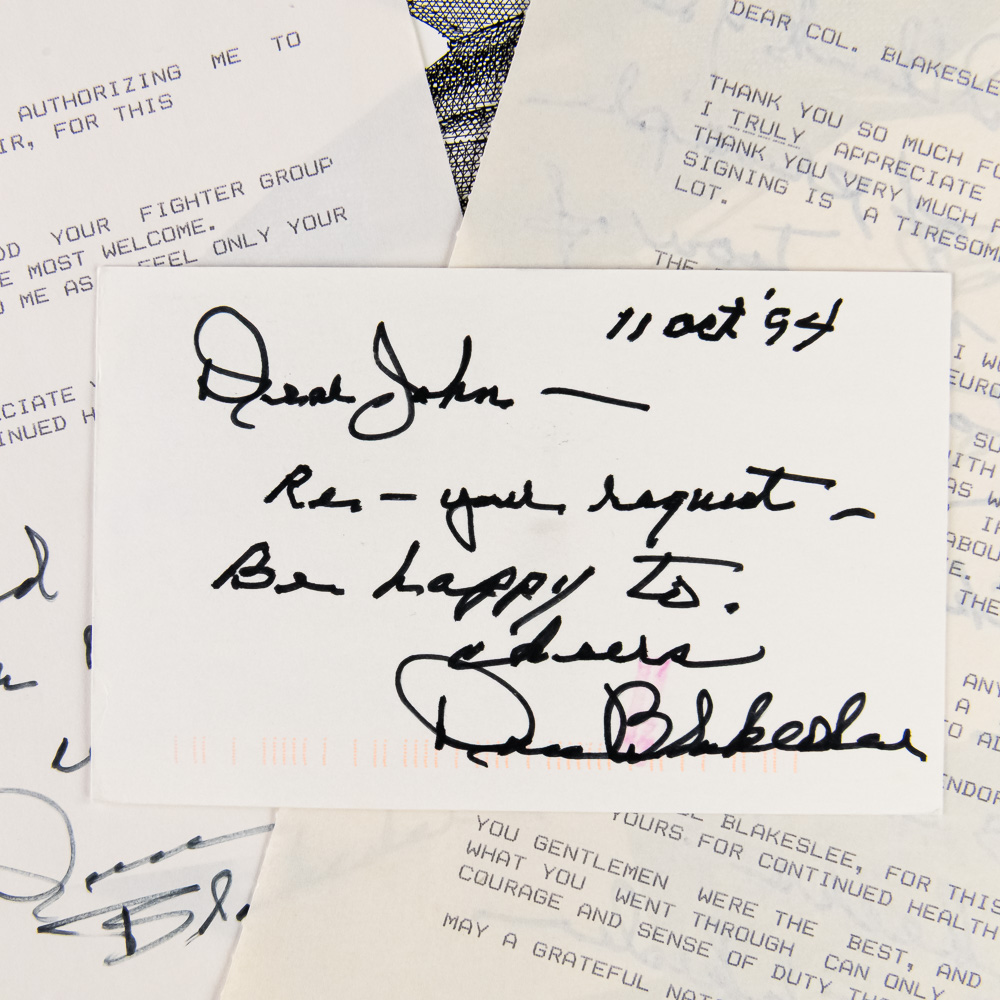 AUTHORIZING ME TO
IR, FOR THIS
YOUR FIGHTER GROUP
E MOST WELCOME.
ME AS FEEL ONLY YOUR
CIATE
INUED H
DEAR COL. BLAKESLE
THANK YOU SO MUCH FO
I TRULY APPRECIATE
THANK YOU VERY MUCH
SIGNING IS A TIRESOM
LOT.
THE
11 Oct '94
Dear John —
Re. — your request —
Be happy to.
cheers
Don Blakeslee
I W
EURO
SU
WITH
AS W
ABOU
E.
THE
ANY
A
TO AD
ENDOR
BLAKESLEE, FOR THIS
YOURS FOR CONTINUED HEALTH
YOU GENTLEMEN WERE THE BEST, AND
WHAT YOU WENT THROUGH CAN ONLY
COURAGE AND SENSE OF DUTY TH
MAY A GRATEFUL NAT
Don
Bl.